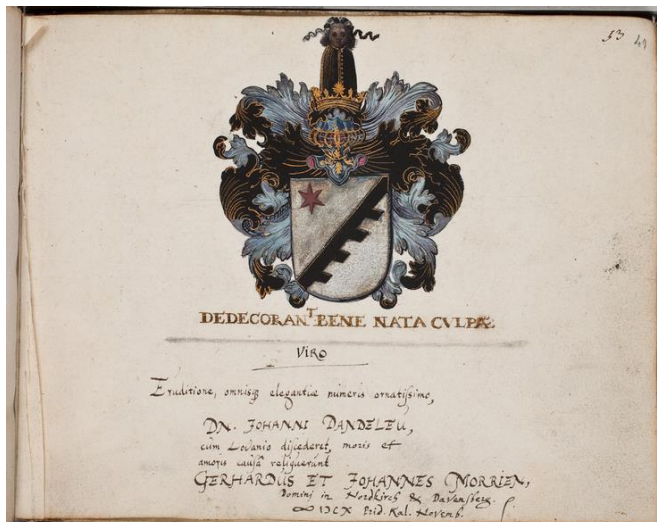 53 49
DEDECORANT BENE NATA CVLPÆ
VIRO
Eruditione, omnisq; elegantiæ numeris ornatissimo,
DN. JOHANNI DANDELEU,
cùm Lovanio discederet, moris et
amoris causâ reliquerunt
GERHARDUS ET JOHANNES MORRIEN,
Domini in Nordkirch & Davensberg.
∞ IↃCX Prid. Kal. Novemb.